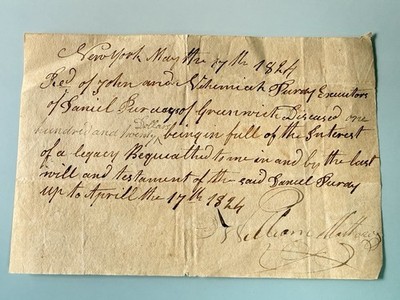 New York May the 17th 1824
Recd of John and Nehemiah Purdy Executors
of Daniel Purdy of Greenwich Diseased one
Dollars
hundred and twenty being in full of the Interest
of a legacy Bequeathed to me in and by the last
will and testament of the said Daniel Purdy
up to Aprill the 17th 1824
William